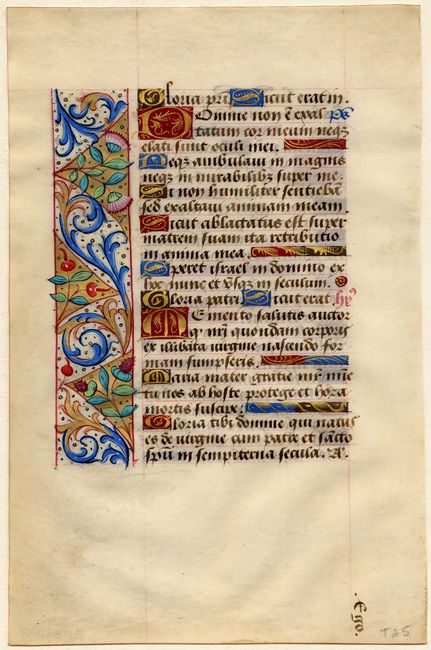 Gloria pri Sicut erat in.
Domine non e exal ps
tatum cor meum neqz
elati sunt oculi mei.
Neqz ambulavi in magnis
neqz in mirabilibz super me.
Si non humiliter sentieba
sed exaltavi animam meam.
Sicut ablactatus est super
matrem suam ita retributio
in anima mea.
Speret israel in domino ex
hoc nunc et usqz in seculum.
Gloria patri. Sicut erat. hy9
Memento salutis auctor
q nri quondam corporis
ex illibata virgine nascendo for
mam sumpseris.
Maria mater gratie mr mie
tu nos ab hoste protege et hora
mortis suscipe.
Gloria tibi domine qui natus
es de virgine cum patre et sacto
spu in sempiterna secula. A.
. Ego.
TA5